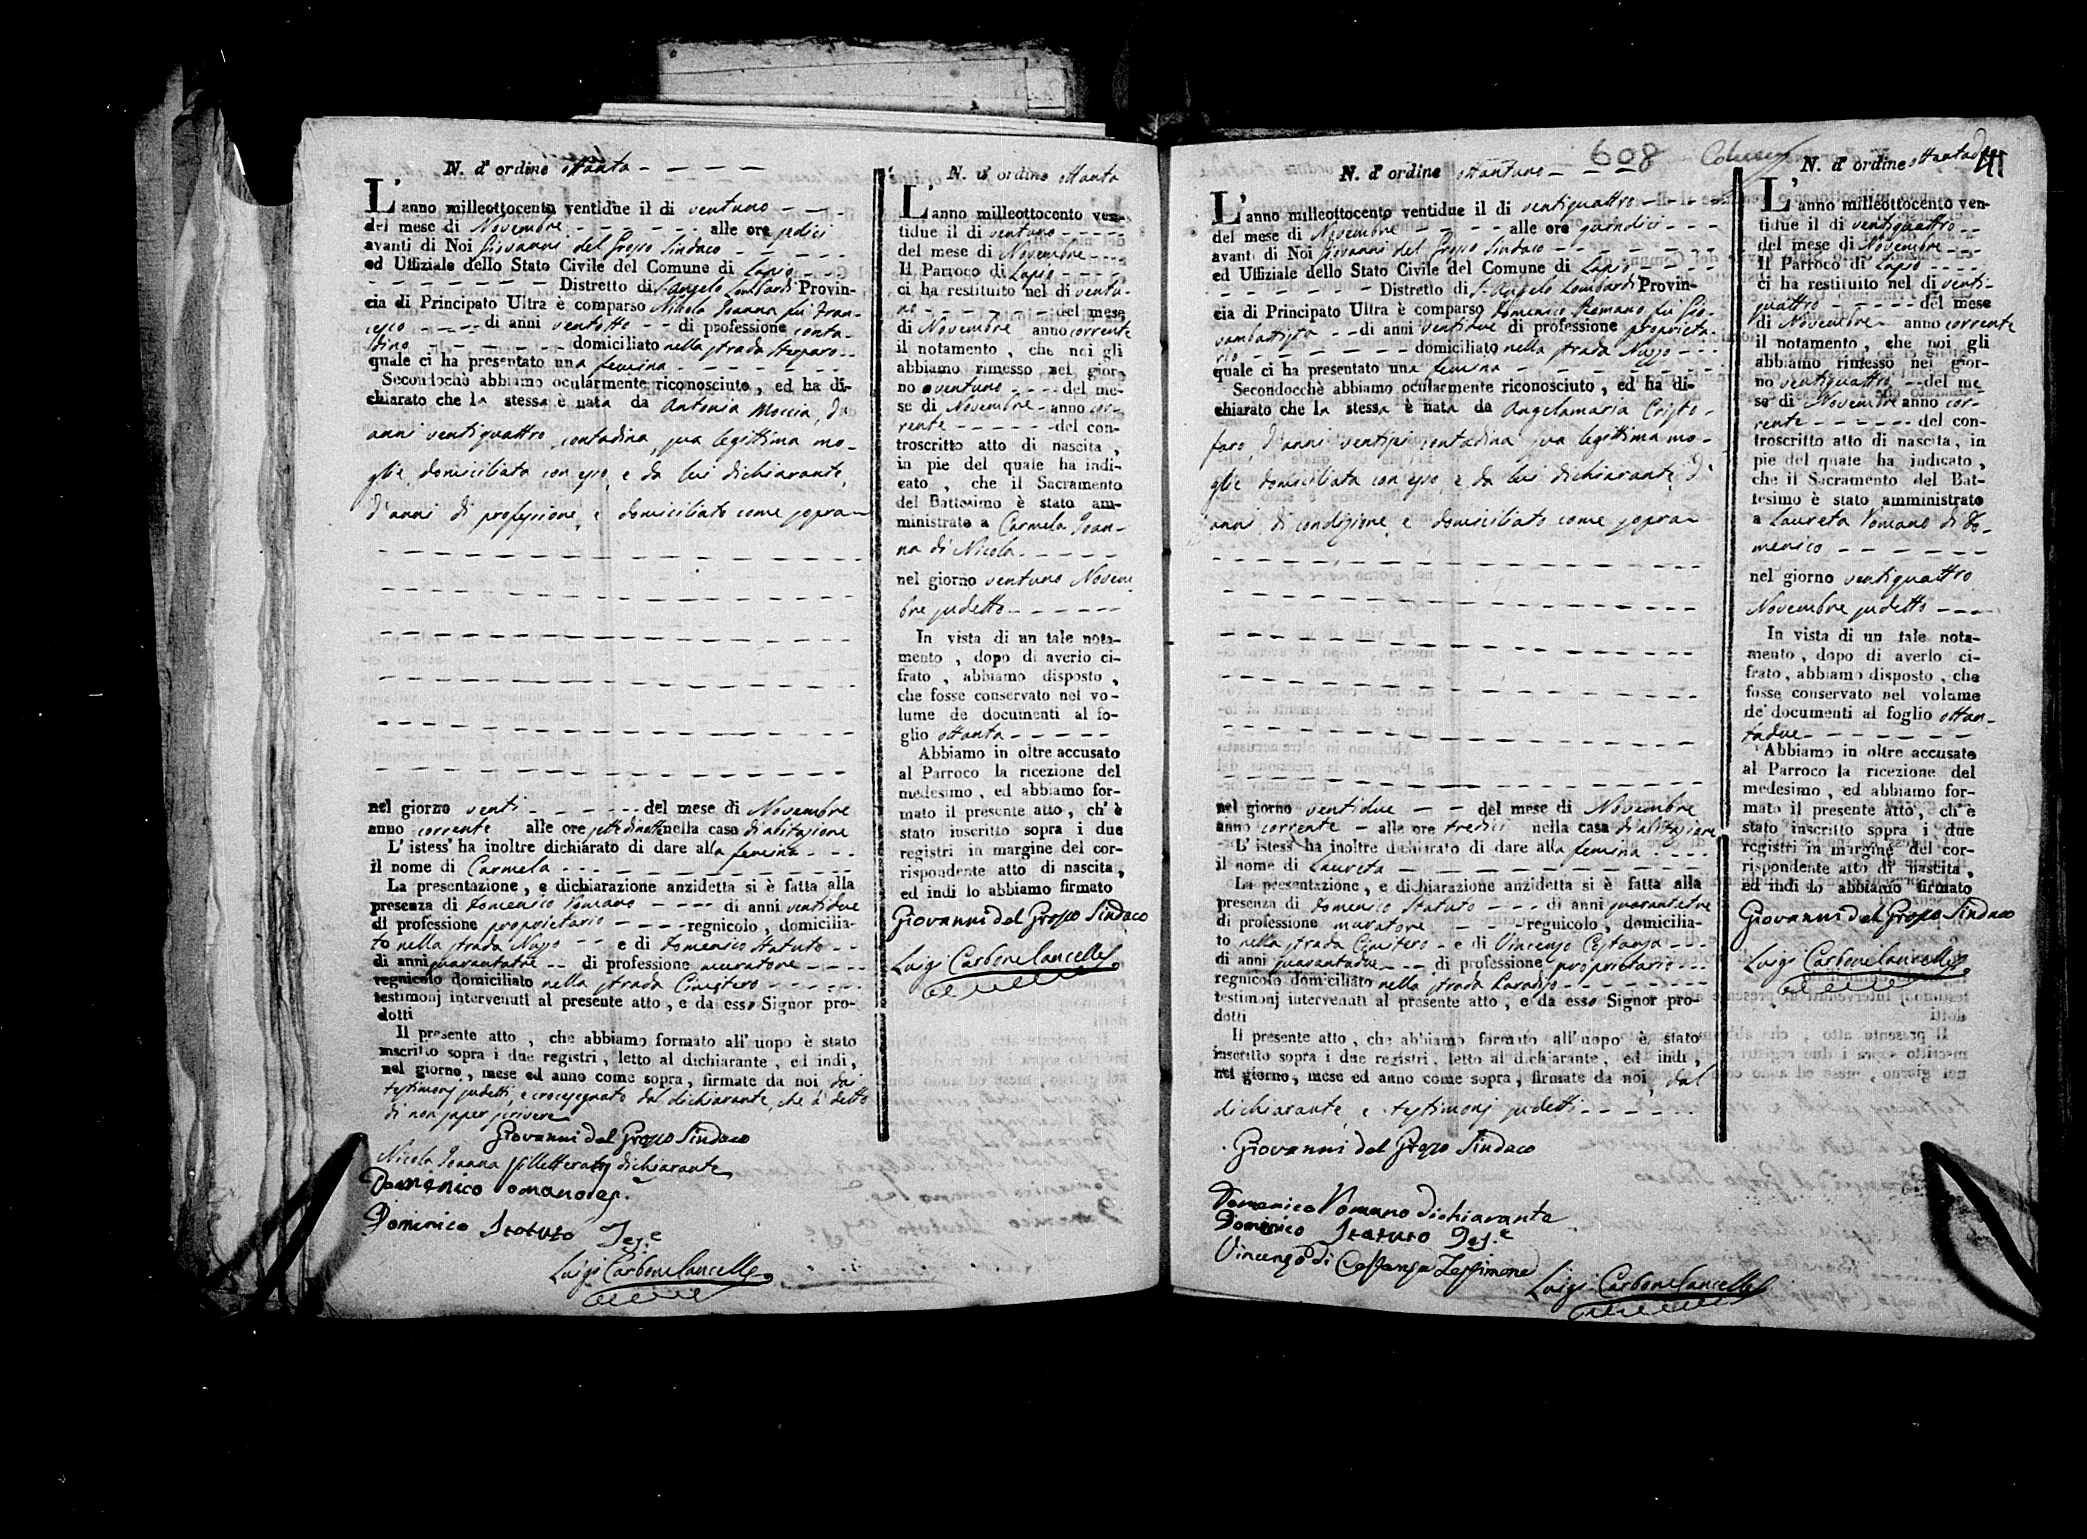 N. d' ordine ottanta
L' anno milleottocento ventidue il di ventuno
del mese di Novembre alle ore sedici
avanti di Noi Giovanni del Grosso Sindaco
ed Uffiziale dello Stato Civile del Comune di Lapio
Distretto di S. Angelo Lombardi Provin-
cia di Principato Ultra è comparso Nicola Joanna fu Fran-
cesco di anni ventotto di professione conta-
dino domiciliato nella strada
quale ci ha presentato una femina
Secondochè abbiamo ocularmente riconosciuto, ed ha di-
chiarato che la stessa è nata da Antonia Moccia, di
anni ventiquattro contadina, sua legittima mo-
glie, domiciliata con esso, e da lui dichiarante,
d'anni di professione, e domiciliato come sopra
nel giorno venti del mese di Novembre
anno corrente alle ore sette di notte nella casa di abitazione
L' istess' ha inoltre dichiarato di dare alla femina
il nome di Carmela
La presentazione, e dichiarazione anzidetta si è fatta alla
presenza di Domenico Romano di anni ventidue
di professione proprietario regnicolo, domicilia-
to nella strada Nusso e di Domenico Statuto
di anni quarantatre di professione muratore
regnicolo domiciliato nella strada Cimitero
testimonj intervenuti al presente atto, e da esso Signor pro-
dotti
Il presente atto, che abbiamo formato all' uopo è stato
inscritto sopra i due registri, letto al dichiarante, ed indi,
nel giorno, mese ed anno come sopra, firmato da noi da'
testimonj sudetti, e crocesegnato dal dichiarante, che à detto
di non saper scrivere
Giovanni del Grosso Sindaco
Nicola Joanna illetterato dichiarante
Domenico Romano
Dominico Statuto Tes.e
Luigi Carbone Cancell.
N. d' ordine ottanta
L' anno milleottocento ven-
tidue il di ventuno
del mese di Novembre
Il Parroco di Lapio
ci ha restituito nel di ventu-
no del mese
di Novembre anno corrente
il notamento, che noi gli
abbiamo rimesso nel gior-
no ventuno del me-
se di Novembre anno cor-
rente del con-
troscritto atto di nascita,
in pie del quale ha indi-
cato, che il Sacramento
del Battesimo è stato am-
ministrato a Carmela Joan-
na di Nicola
nel giorno ventuno Novem
bre sudetto
In vista di un tale nota-
mento, dopo di averlo ci-
frato, abbiamo disposto,
che fosse conservato nel vo-
lume de documenti al fo-
glio ottanta
Abbiamo in oltre accusato
al Parroco la ricezione del
medesimo, ed abbiamo for-
mato il presente atto, ch' è
stato inscritto sopra i due
registri in margine del cor-
rispondente atto di nascita,
ed indi lo abbiamo firmato
Giovanni del Grosso Sindaco
Luigi Carbone Cancell.
608
N. d' ordine ottantuno
L' anno milleottocento ventidue il di ventiquattro
del mese di Novembre alle ore quindici
avanti di Noi Giovanni del Grosso Sindaco
ed Uffiziale dello Stato Civile del Comune di Lapio
Distretto di S. Angelo Lombardi Provin-
cia di Principato Ultra è comparso Domenico Romano fu Gio-
vambattista di anni ventidue di professione proprieta-
rio domiciliato nella strada Nusso
quale ci ha presentato una femina
Secondocchè abbiamo ocularmente riconosciuto, ed ha di-
chiarato che la stessa è nata da Angelamaria Cristo-
faro, d'anni ventisei contadina sua legittima mo-
glie domiciliata con esso, e da lui dichiarante, d'
anni di condizione, e domiciliato come sopra
nel giorno ventidue del mese di Novembre
anno corrente alle ore tredici nella casa di abitazione
L' istess' ha inoltre dichiarato di dare alla femina
il nome di Laureta
La presentazione, e dichiarazione anzidetta si è fatta alla
presenza di Domenico Statuto di anni quarantatre
di professione muratore regnicolo, domicilia-
to nella strada Cimitero e di Vincenzo Costanza
di anni quarantadue di professione proprietario
regnicolo domiciliato nella strada
testimonj intervenuti al presente atto, e da esso Signor pro-
dotti
Il presente atto, che abbiamo formato all' uopo è stato
inscritto sopra i due registri, letto al dichiarante, ed indi,
nel giorno, mese ed anno come sopra, firmato da noi dal
dichiarante, e testimonj sudetti
Giovanni del Grosso Sindaco
Domenico Romano dichiarante
Dominico Statuto Tes.e
Vincenzo di Costanza Testimone
Luigi Carbone Cancell.
N. d' ordine
L' anno milleottocento ven-
tidue il di ventiquattro
del mese di Novembre
Il Parroco di Lapio
ci ha restituito nel di venti-
quattro del mese
di Novembre anno corrente
il notamento, che noi gli
abbiamo rimesso nel gior-
no ventiquattro del me
se di Novembre anno cor-
rente del con-
troscritto atto di nascita, in
pie del quale ha indicato,
che il Sacramento del Bat-
tesimo è stato amministrato
a Laureta Romano di Do-
menico
nel giorno ventiquattro
Novembre sudetto
In vista di un tale nota-
mento, dopo di averlo ci-
frato, abbiamo disposto, che
fosse conservato nel volume
de' documenti al foglio ottan-
tadue
Abbiamo in oltre accusato
al Parroco la ricezione del
medesimo, ed abbiamo for-
mato il presente atto, ch' è
stato inscritto sopra i due
registri in margine del cor-
rispondente atto di nascita,
ed indi lo abbiamo firmato
Giovanni del Grosso Sindaco
Luigi Carbone Cancell.